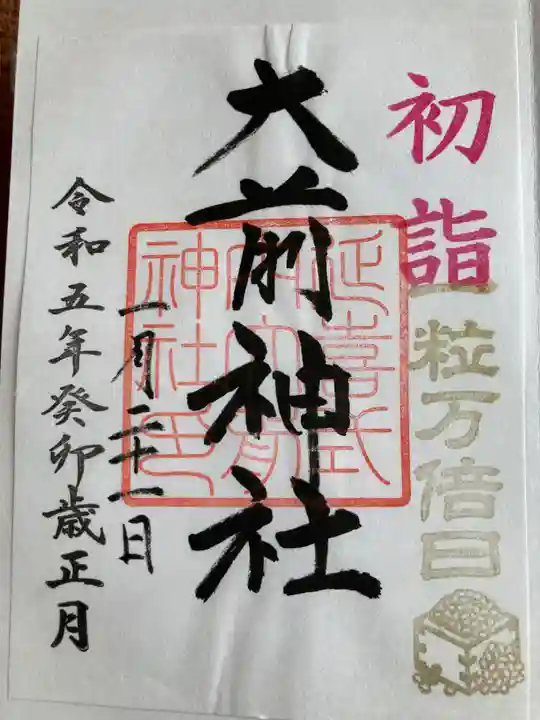 初詣
一粒万倍日
大前神社
延喜式
神社印
一月二十一日
令和五年癸卯歳正月